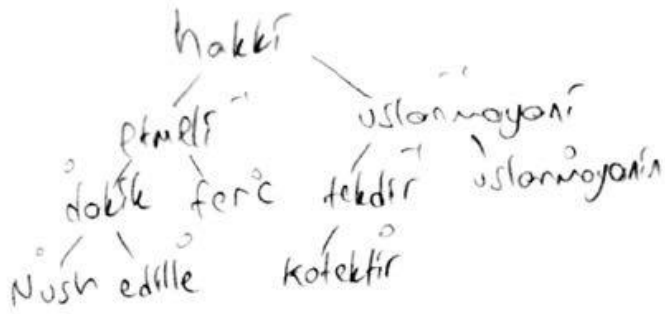 hakkı
etmeli -1 uslanmayanı -1
0 dakik fer'c 0 tekdir -1 uslanmayanın 0
0 Nush edille 0 kötektir 0